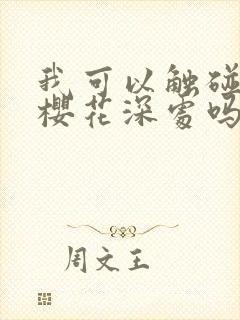 我可以触碰
樱花深处吗
周文王